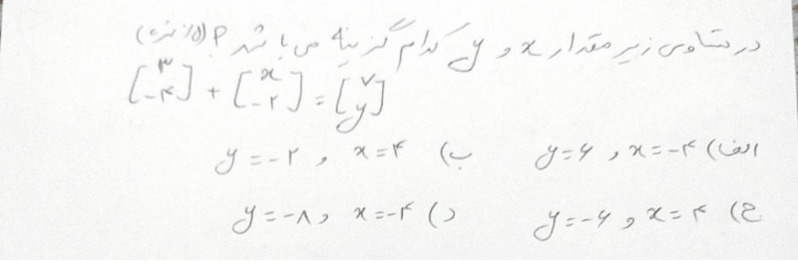 در تساوی زیر مقدار x و y کدام گزینه می باشد؟ (۰/۵ نمره)
[۳ -۴] + [x -۲] = [۷ y]
الف) x = -۴ و y = ۶ ب) x = ۴ و y = -۲
ج) x = ۴ و y = -۶ د) x = -۴ و y = -۸